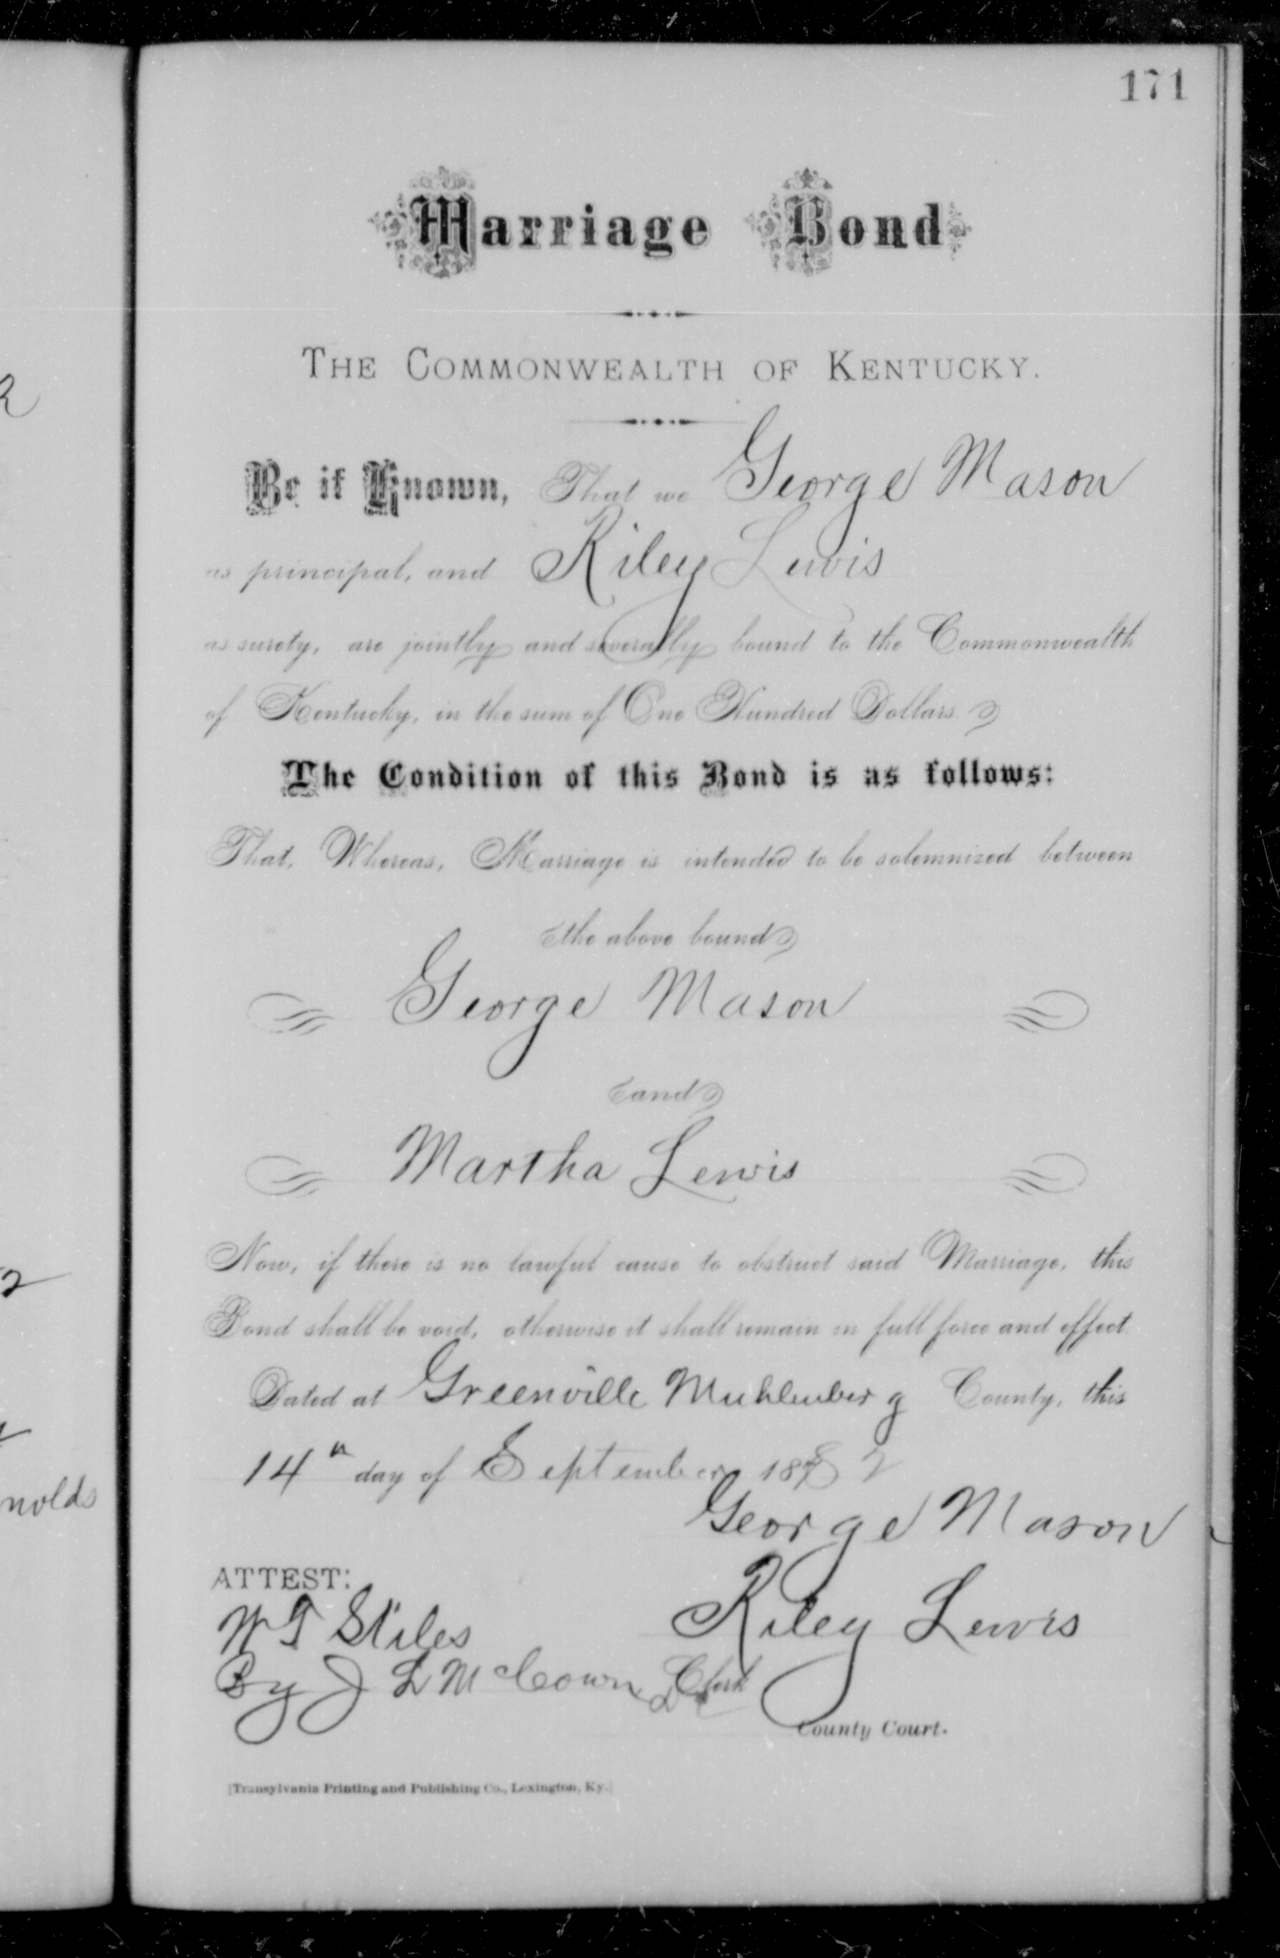 171
Marriage Bond
THE COMMONWEALTH OF KENTUCKY.
Be it Known, That we George Mason
as principal, and Riley Lewis
as surety, are jointly and severally bound to the Commonwealth
of Kentucky, in the sum of One Hundred Dollars
The Condition of this Bond is as follows:
That, Whereas, Marriage is intended to be solemnized between
the above bound
George Mason
and
Martha Lewis
Now, if there is no lawful cause to obstruct said Marriage, this
Bond shall be void, otherwise it shall remain in full force and effect.
Dated at Greenville Muhlenberg County, this
14th day of September 1882
George Mason
ATTEST:
Riley Lewis
W T Stiles
By J L McCown Clerk
County Court.
[Transylvania Printing and Publishing Co., Lexington, Ky.]
nolds